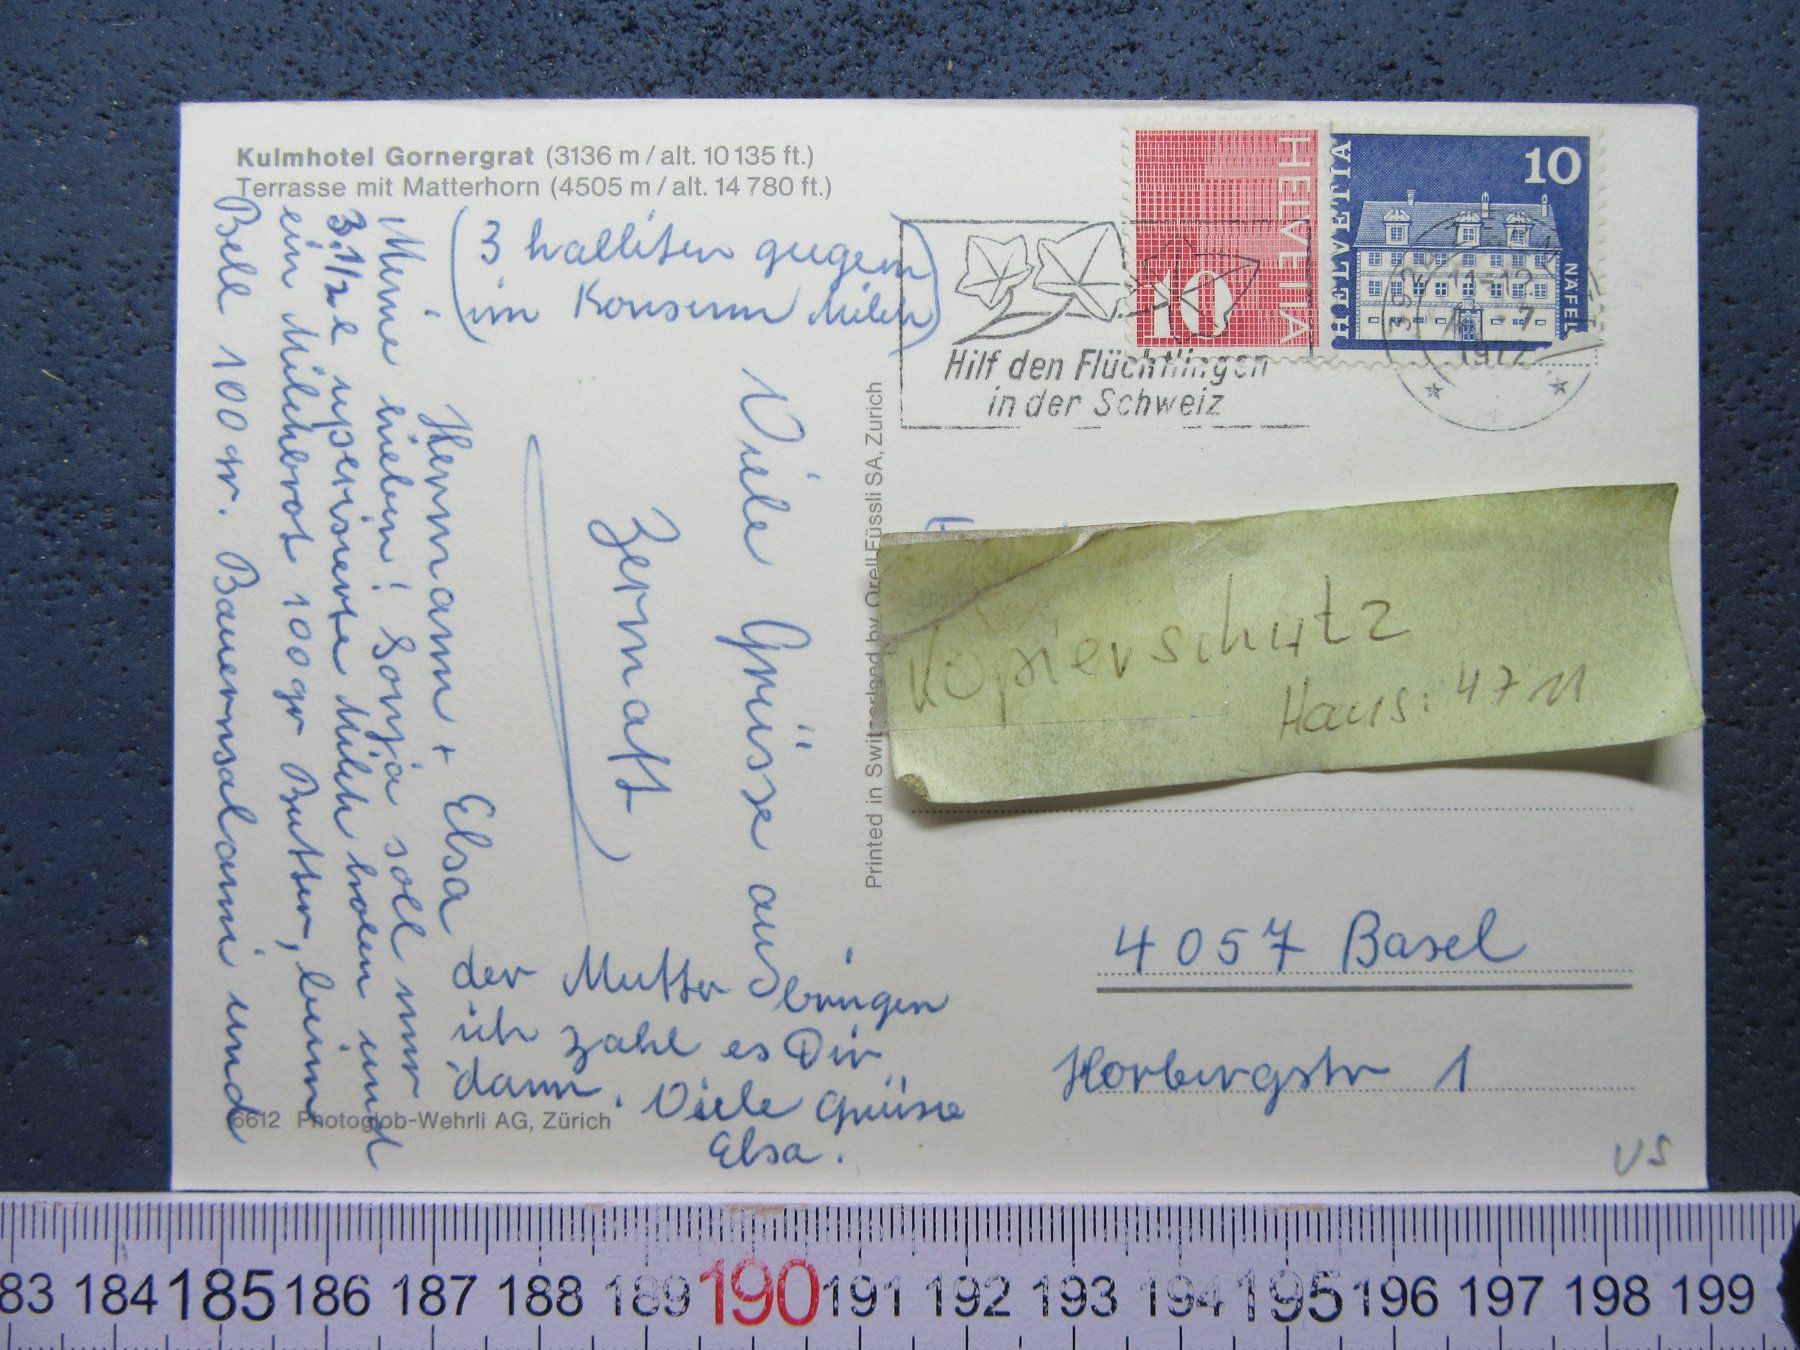 Kulmhotel Gornergrat (3136 m / alt. 10 135 ft.)
Terrasse mit Matterhorn (4505 m / alt. 14 780 ft.)
(3 halliter gegen
im Konsum Milch)
Viele Grüsse aus
Zermatt
Hermann + Elsa
Meine lieben! Sonja soll nur
3.1/2 l uperisierte Milch holen und
ein Milchbrot 100 gr Butter, beim
Bell 100 gr. Bauernsalami und
der Mutter bringen
ich zahl es Dir
dann. Viele Grüsse
Elsa.
6612 Photoglob-Wehrli AG, Zürich
Printed in Switzerland by Orell Füssli SA, Zürich
HELVETIA
10
HELVETIA
10
NÄFELS
11-12
1972
Hilf den Flüchtlingen
in der Schweiz
Kopierschutz
Haus: 4711
4057 Basel
Horburgstr 1
VS
83 184 185 186 187 188 189 190 191 192 193 194 195 196 197 198 199